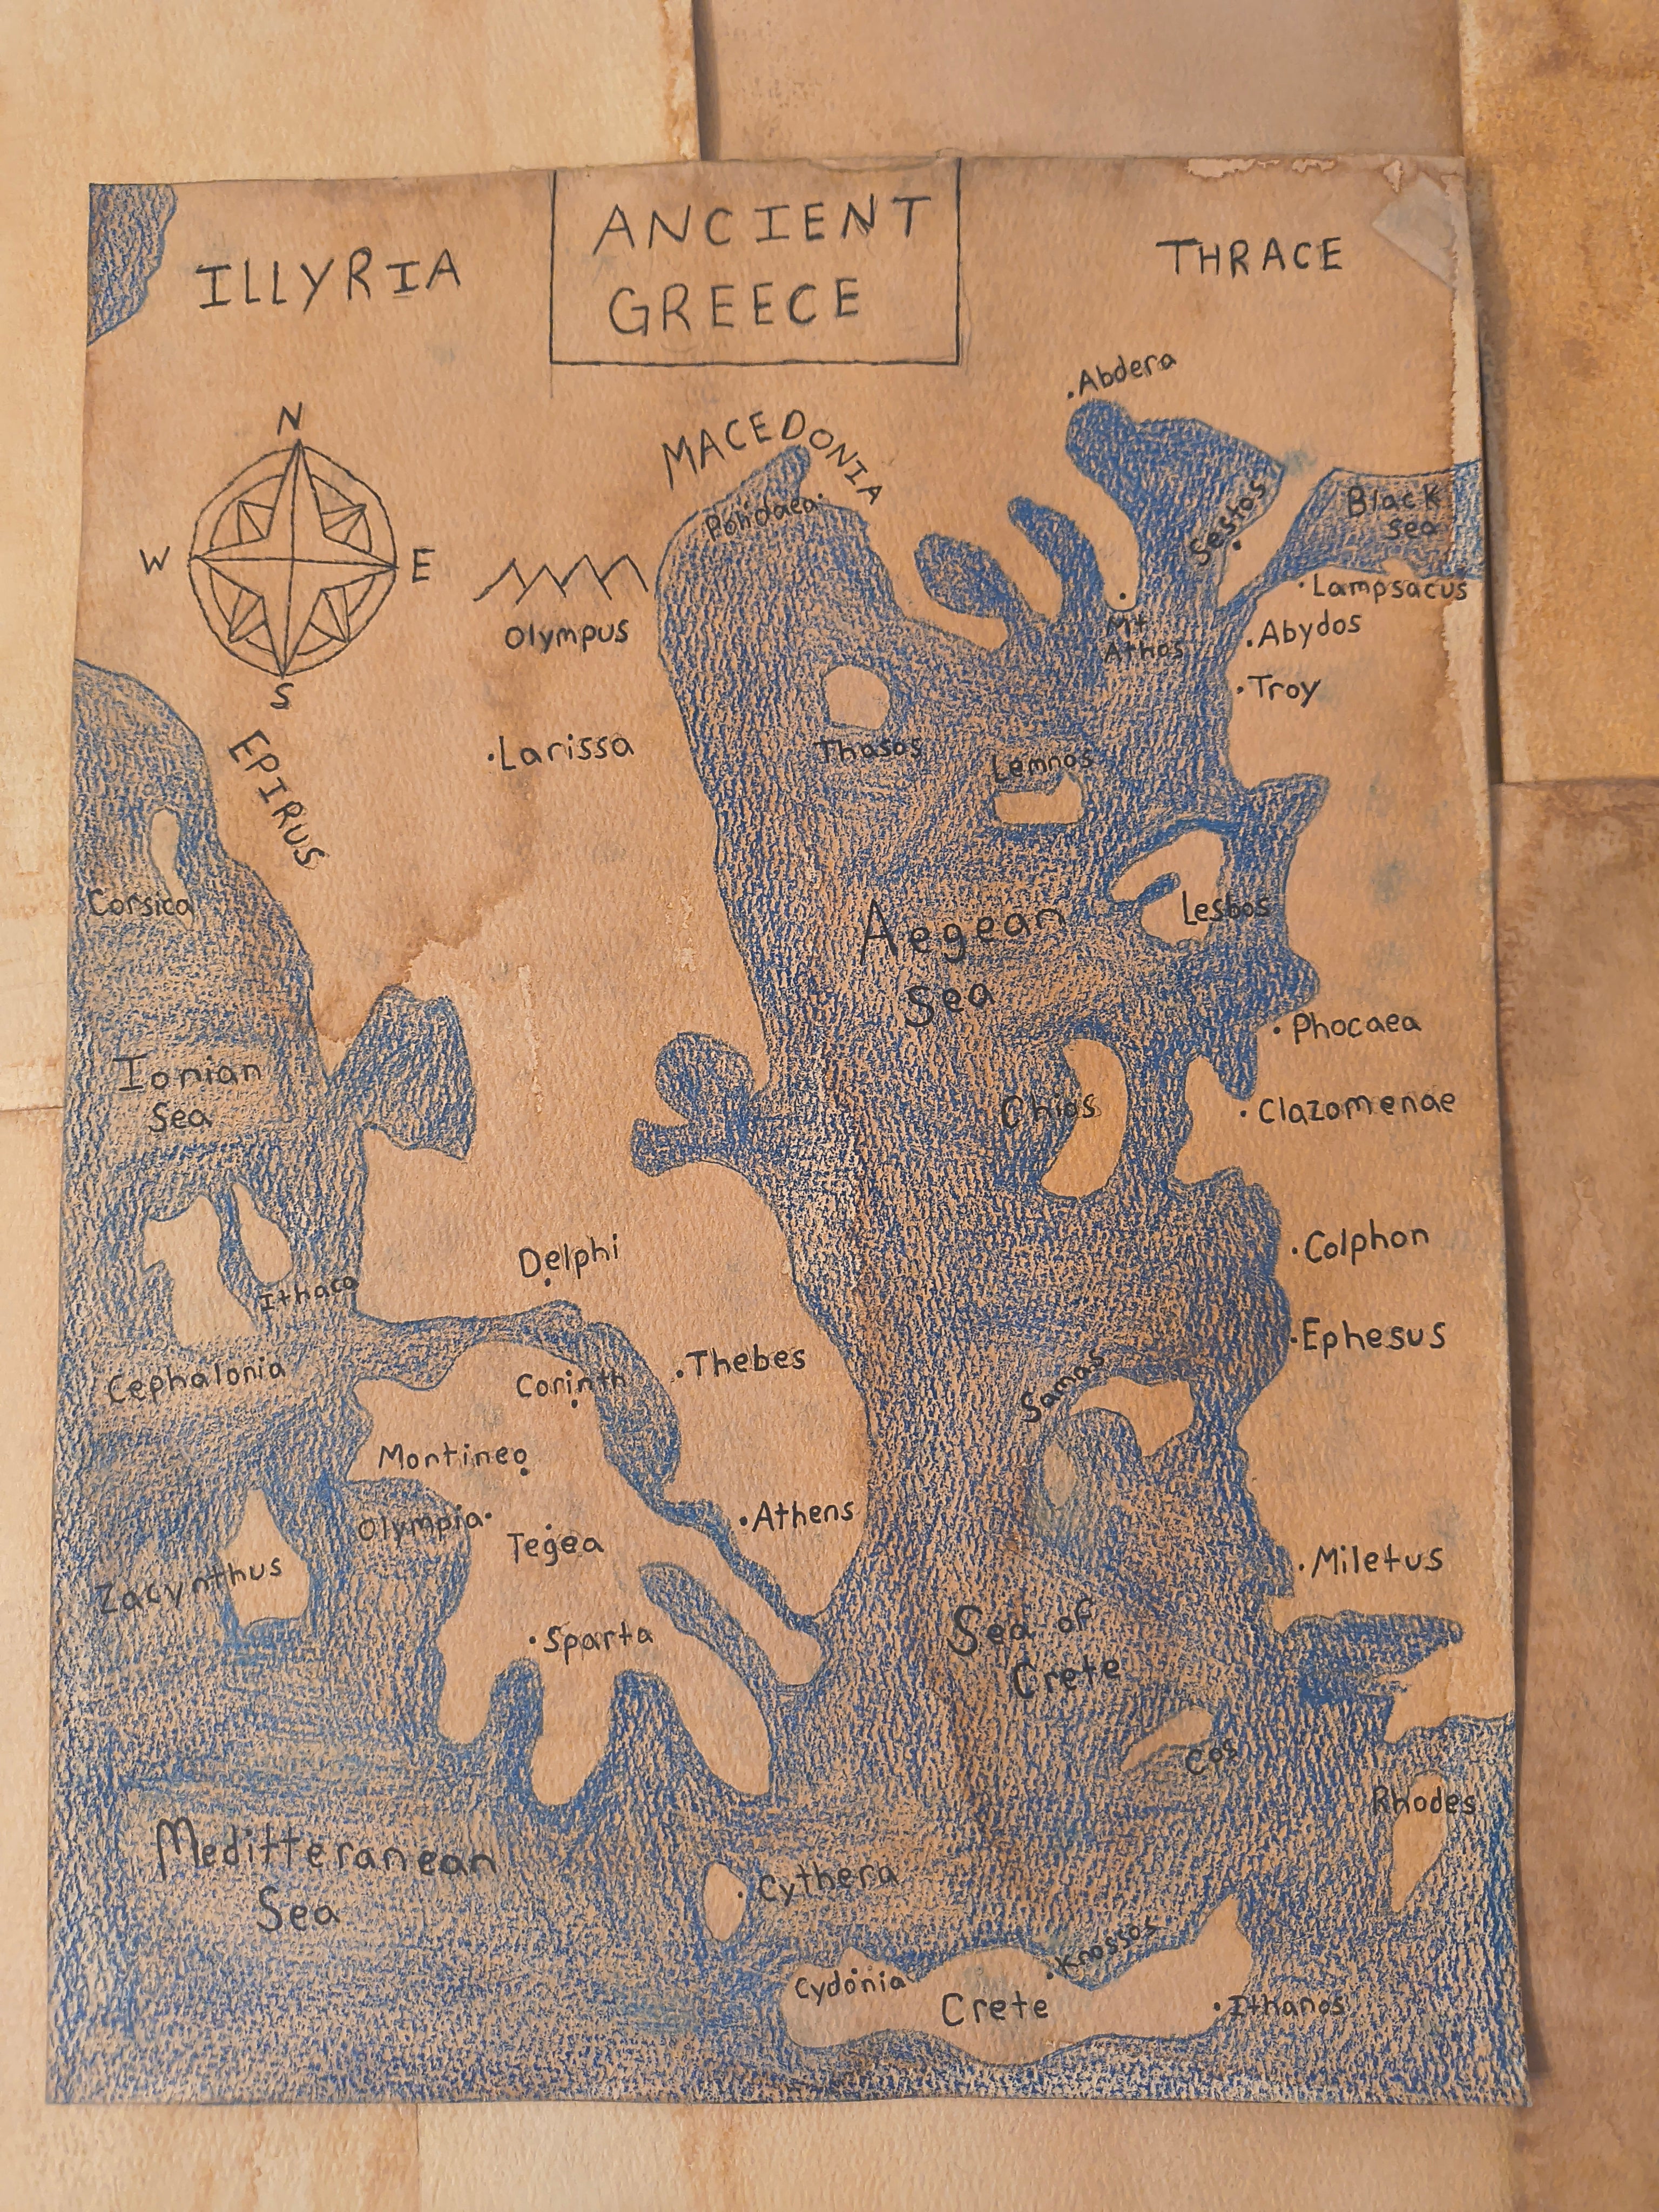 ANCIENT
GREECE
ILLYRIA
THRACE
Abdera
MACEDONIA
N
W
E
S
Potidaea
Sestos
Black
Sea
Lampsacus
Olympus
Mt
Athos
Abydos
Troy
Larissa
EPIRUS
Thasos
Lemnos
Corsica
Lesbos
Aegean
Sea
Phocaea
Ionian
Sea
Chios
Clazomenae
Delphi
Colphon
Ithaca
Ephesus
Cephalonia
Corinth
Thebes
Samas
Montineo
Olympia
Tegea
Athens
Miletus
Zacynthus
Sparta
Sea of
Crete
Cos
Rhodes
Meditteranean
Sea
Cythera
Knossos
Cydonia
Crete
Ithanos